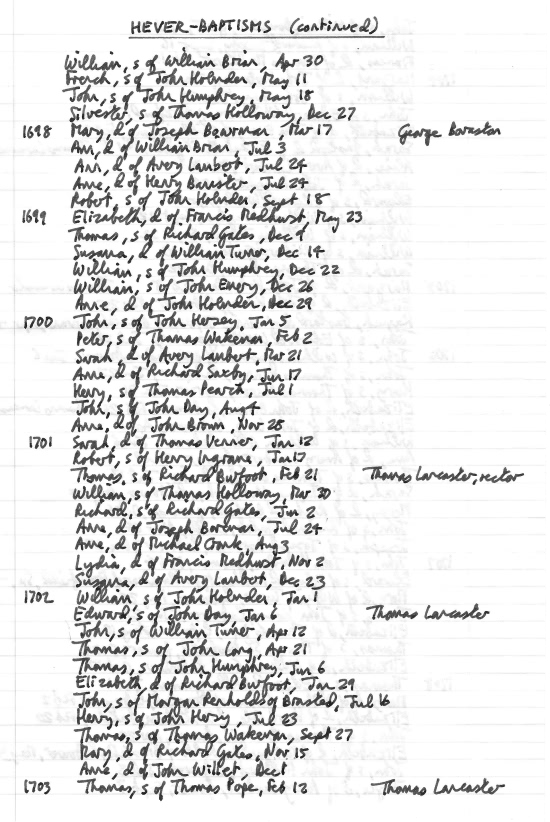 HEVER-BAPTISMS (continued)
William, s of William Brian, Apr 30
French, s of John Holnden, May 11
John, s of John Humphrey, May 18
Silvester, s of Thomas Holloway, Dec 27
1698 Mary, d of Joseph Bowrman, Mar 17 George Boraston
Ann, d of William Brian, Jul 3
Ann, d of Avery Lambert, Jul 24
Anne, d of Henry Banister, Jul 24
Robert, s of John Holnden, Sept 18
1699 Elizabeth, d of Francis Medhurst, May 23
Thomas, s of Richard Gates, Dec
Susanna, d of William Turner, Dec 14
William, s of John Humphrey, Dec 22
William, s of John Emery, Dec 26
Anne, d of John Holnden, Dec 29
1700 John, s of John Hersey, Jan 5
Peter, s of Thomas Wakenar, Feb 2
Sarah, d of Avery Lambert, Mar 21
Anne, d of Richard Saxby, Jun 17
Henry, s of Thomas Pearch, Jul 1
John, s of John Day, Aug 4
Anne, d of John Brown, Nov 28
1701 Sarah, d of Thomas Verner, Jan 12
Robert, s of Henry Ingrame, Jan 17
Thomas, s of Richard Burfoot, Feb 21 Thomas Lancaster, rector
William, s of Thomas Holloway, Mar 30
Richard, s of Richard Gates, Jun 2
Anne, d of Joseph Boreman, Jul 24
Anne, d of Michael Cronk, Aug 3
Lydia, d of Francis Medhurst, Nov 2
Susanna, d of Avery Lambert, Dec 23
1702 William, s of John Holnden, Jan 1
Edward, s of John Day, Jan 6 Thomas Lancaster
John, s of William Turner, Apr 12
Thomas, s of John Long, Apr 21
Thomas, s of John Humphrey, Jun 6
Elizabeth, d of Richard Burfoot, Jan 29
John, s of Morgan Renholds of Brasted, Jul 16
Henry, s of John Hersy, Jul 23
Thomas, s of Thomas Wakenar, Sept 27
Mary, d of Richard Gates, Nov 15
Anne, d of John Willet, Dec 1
1703 Thomas, s of Thomas Pope, Feb 12 Thomas Lancaster